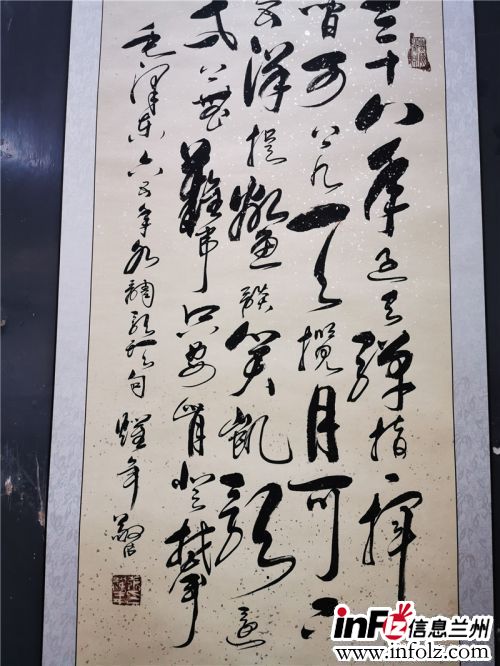 三十八年过去弹指一挥
间可上九天揽月可下
五洋捉鳖谈笑凯歌还
世上無難事只要肯登攀
毛泽东六五年水调歌头句
inFOLZ信息兰州
www.infolz.com